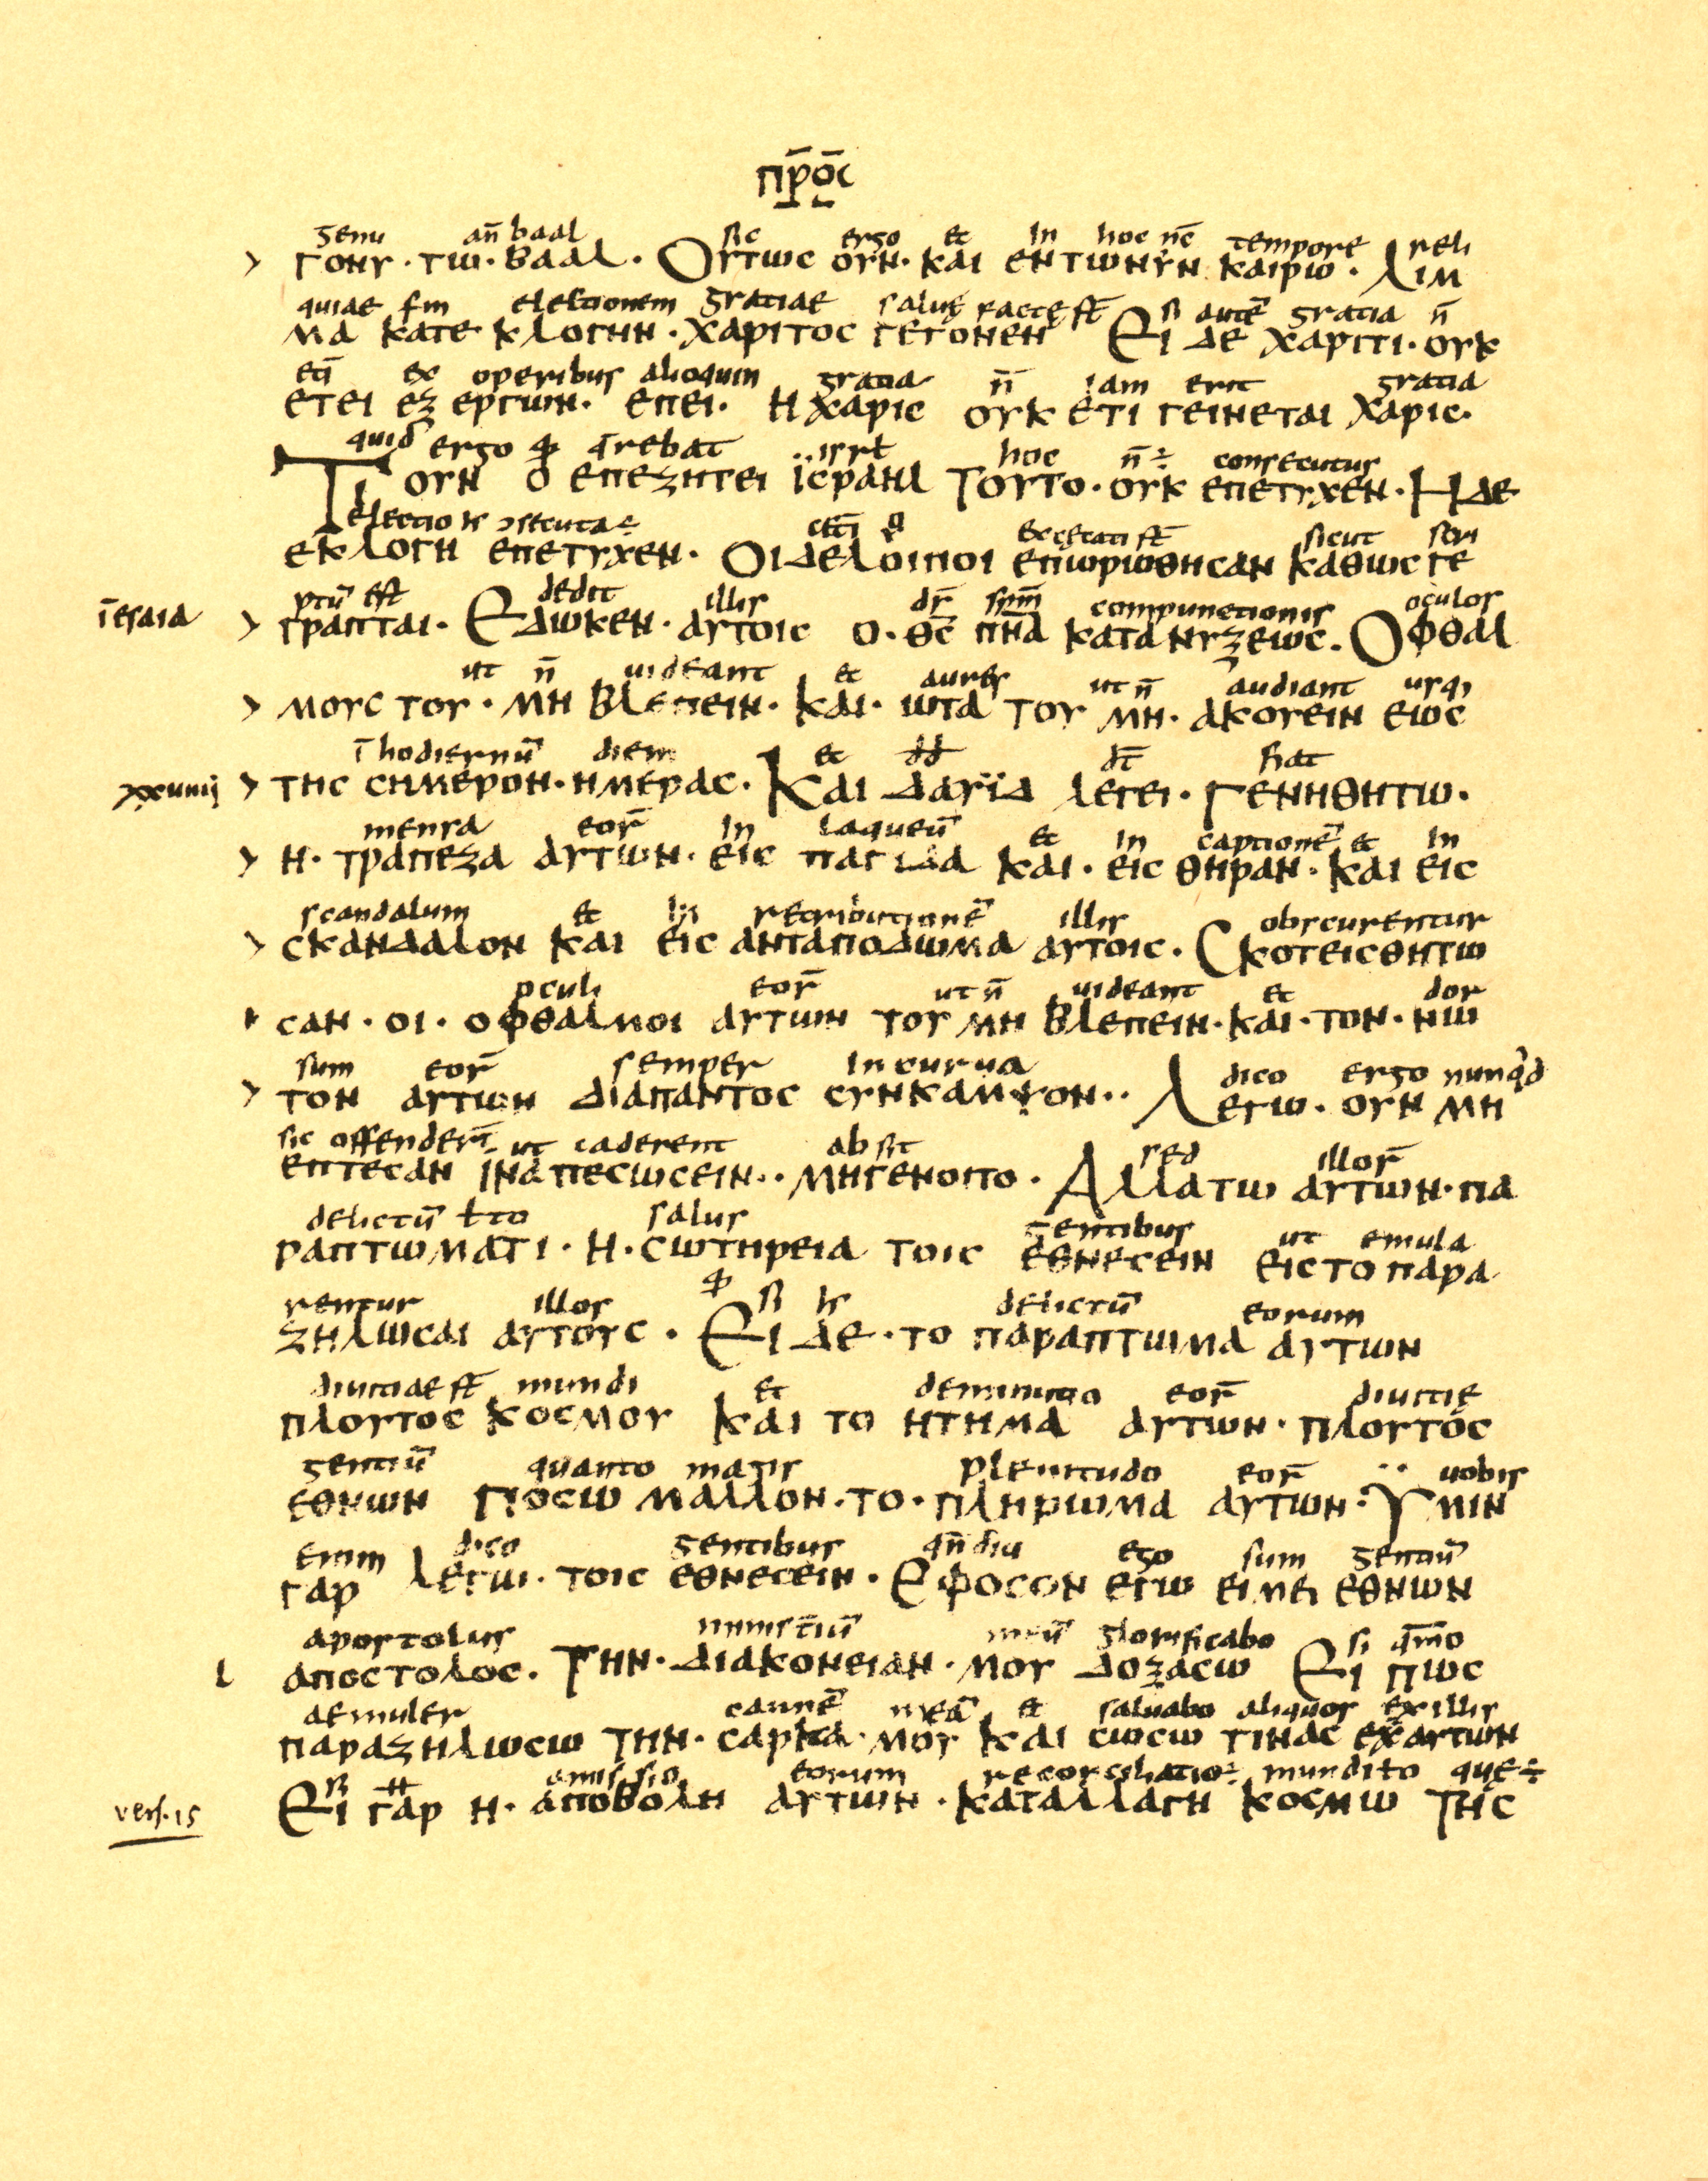 π̅ρ̅ο̅ς̅
genu an̅ baal sic ergo et in hoc nc̅ tempore reli
> γονυ · τω · βααλ · Ουτως ουν · και εντωνυν καιρω · λιμ
quiae scm electionem gratiae saluę factę st̅ si aute̅ gratia n̅
μα κατε κλογην · χαριτος γεγονεν Ει δε χαριτι · ουκ
eti̅ ex operibus alioquin gratia n̅ iam erit gratia
ετει εξ εργων · επει · η χαρις ουκ ετι γεινεται χαρις ·
quid ergo qrebat isrl hoc n̅ ÷ consecutus
Τι ουν ο επεζητει ϊσραηλ Τουτο · ουκ επετυχεν · Η δε
electio consecuta ÷ cęti excecati st̅ sicut scri
εκλογη επετυχεν · Οιδελοιποι επωρωθησαν καθως γε
i̅esaia ptu̅ est dedit illis ds̅ spm̅ compunctionis oculos
> γραπται · Εδωκεν · αυτοις ο · θς̅ πνα̅ κατα νυξεως · Οφθαλ
ut n̅ uideant et aures ut n̅ audiant usq;
> μους του · μη βλεπειν · και · ωτα του μη · ακουειν εως
i̅ hodiernu̅ diem et dd dt̅ fiat
xxuiiij > της σημερον · ημερας · Και δαυϊδ λεγει · Γενηθητω ·
mensa eor̅ in laqueu̅ et in captione̅ et in
> η · τραπεζα αυτων · εις παγιδα και · εις θηραν · και εις
scandalum et in retributione̅ illis obscurentur
> σκανδαλον και εις ανταποδωμα αυτοις · Σκοτεισθητω
oculi eor̅ ut n̅ uideant et dor
> σαν · οι · οφθαλμοι αυτων του μη βλεπειν · και · τον · νω
sum eor̅ semper incurua dico ergo nunqd
> τον αυτων διαπαντος συνκαμψον ·· Λεγω · ουν μη
sic offender̅ ut caderent absit sed illor̅
επτεσαν ινα πεσωσειν ·· μηγενοιτο · Αλλατω αυτων · πα
delictu̅ salus gentibus ut emula
ραπτωματι · η · σωτηρεια τοις εθνεσειν ειστο παρα
rentur illos si delictu̅ eorum
ζηλωσαι αυτους · Ει δε · το παραπτωμα αυτων
diuitiae st̅ mundi et deminutio eor̅ diuitię
πλουτος κοσμου και το ητημα αυτων · πλουτος
gentiu̅ quanto magis plenitudo eor̅ uobis
εθνων ποσω μαλλον · το · πληρωμα αυτων · Υμιν
enim dico gentibus qn̅diu ego sum gentiu̅
γαρ λεγω · τοις εθνεσειν · Εφοσον εγω ειμει εθνων
apostolus minist̅iu̅ meu̅ glorificabo si qm̅o
αποστολος · Την · διακονειαν · μου δοξασω Ει πως
aemuler carne̅ mea̅ et saluabo aliquos ex illis
παραζηλωσω την · σαρκα · μου και σωσω τινας εξ αυτων
si amissio eorum reconciliatio ÷ mundi que ÷
vers. 15 Ει γαρ η · αποβολη αυτων · καταλλαγη κοσμω Της